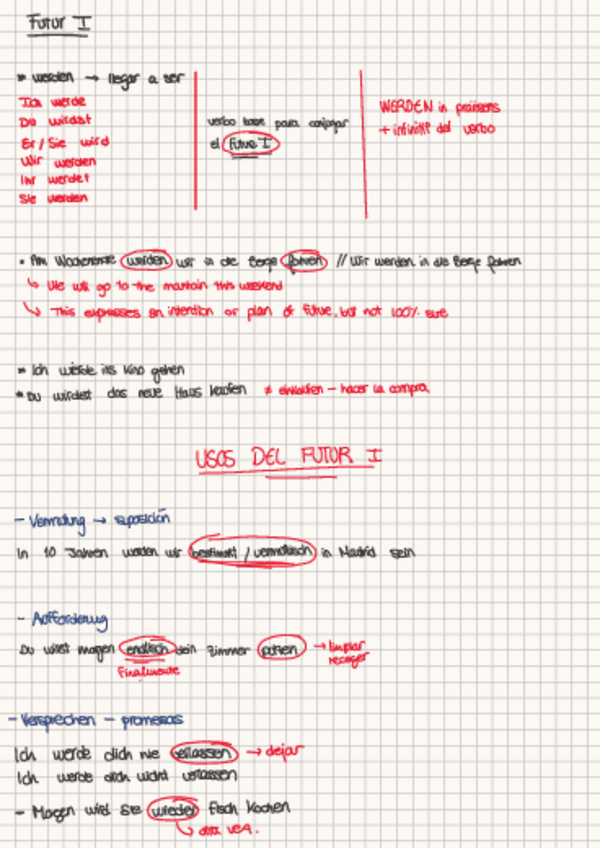 Futur I
* werden → llegar a ser
Ich werde
Du wirdst
Er / Sie wird
Wir werden
Ihr werdet
Sie werden
verbo base para conjugar
el Futur I
WERDEN in präsens
+ infinitiv del verbo
• Am Wochenende werden wir in die Berge fahren // Wir werden in die Berge fahren
↳ We will go to the mantain this weekend
↳ This expresses an intention or plan of future, but not 100% sure
* Ich werde ins Kino gehen
* Du wirdst das neue Haus kaufen ≠ einkaufen – hacer la compra
USOS DEL FUTUR I
– Vermutung → suposición
In 10 Jahren werden wir bestimmt / vermutlich in Madrid sein
– Aufforderug
Du wirst morgen endlich dein Zimmer putzen → limpiar
recoger
Finalmente
– Versprechen – promesas
Ich werde dich nie verlassen → dejar
Ich werde dich nicht verlassen
– Morgen wird Sie wieder Fisch kochen
↳ otra vez.